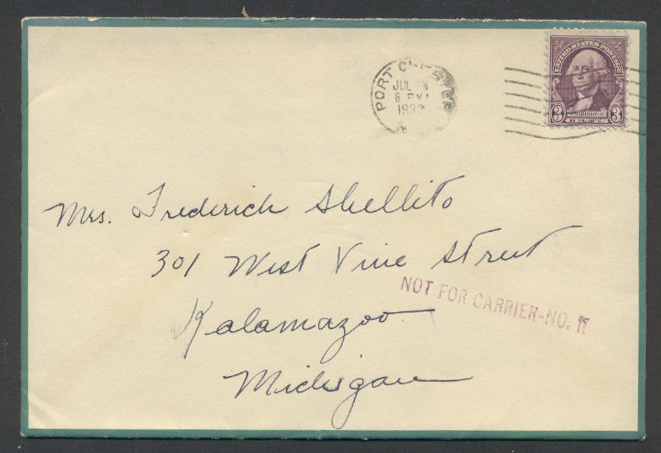 PORT CHESTER
JUL
6 PM
1932
UNITED STATES POSTAGE
3 3
Mrs. Frederick Shellito
301 West Vine Street
NOT FOR CARRIER-NO.
Kalamazoo
Michigan